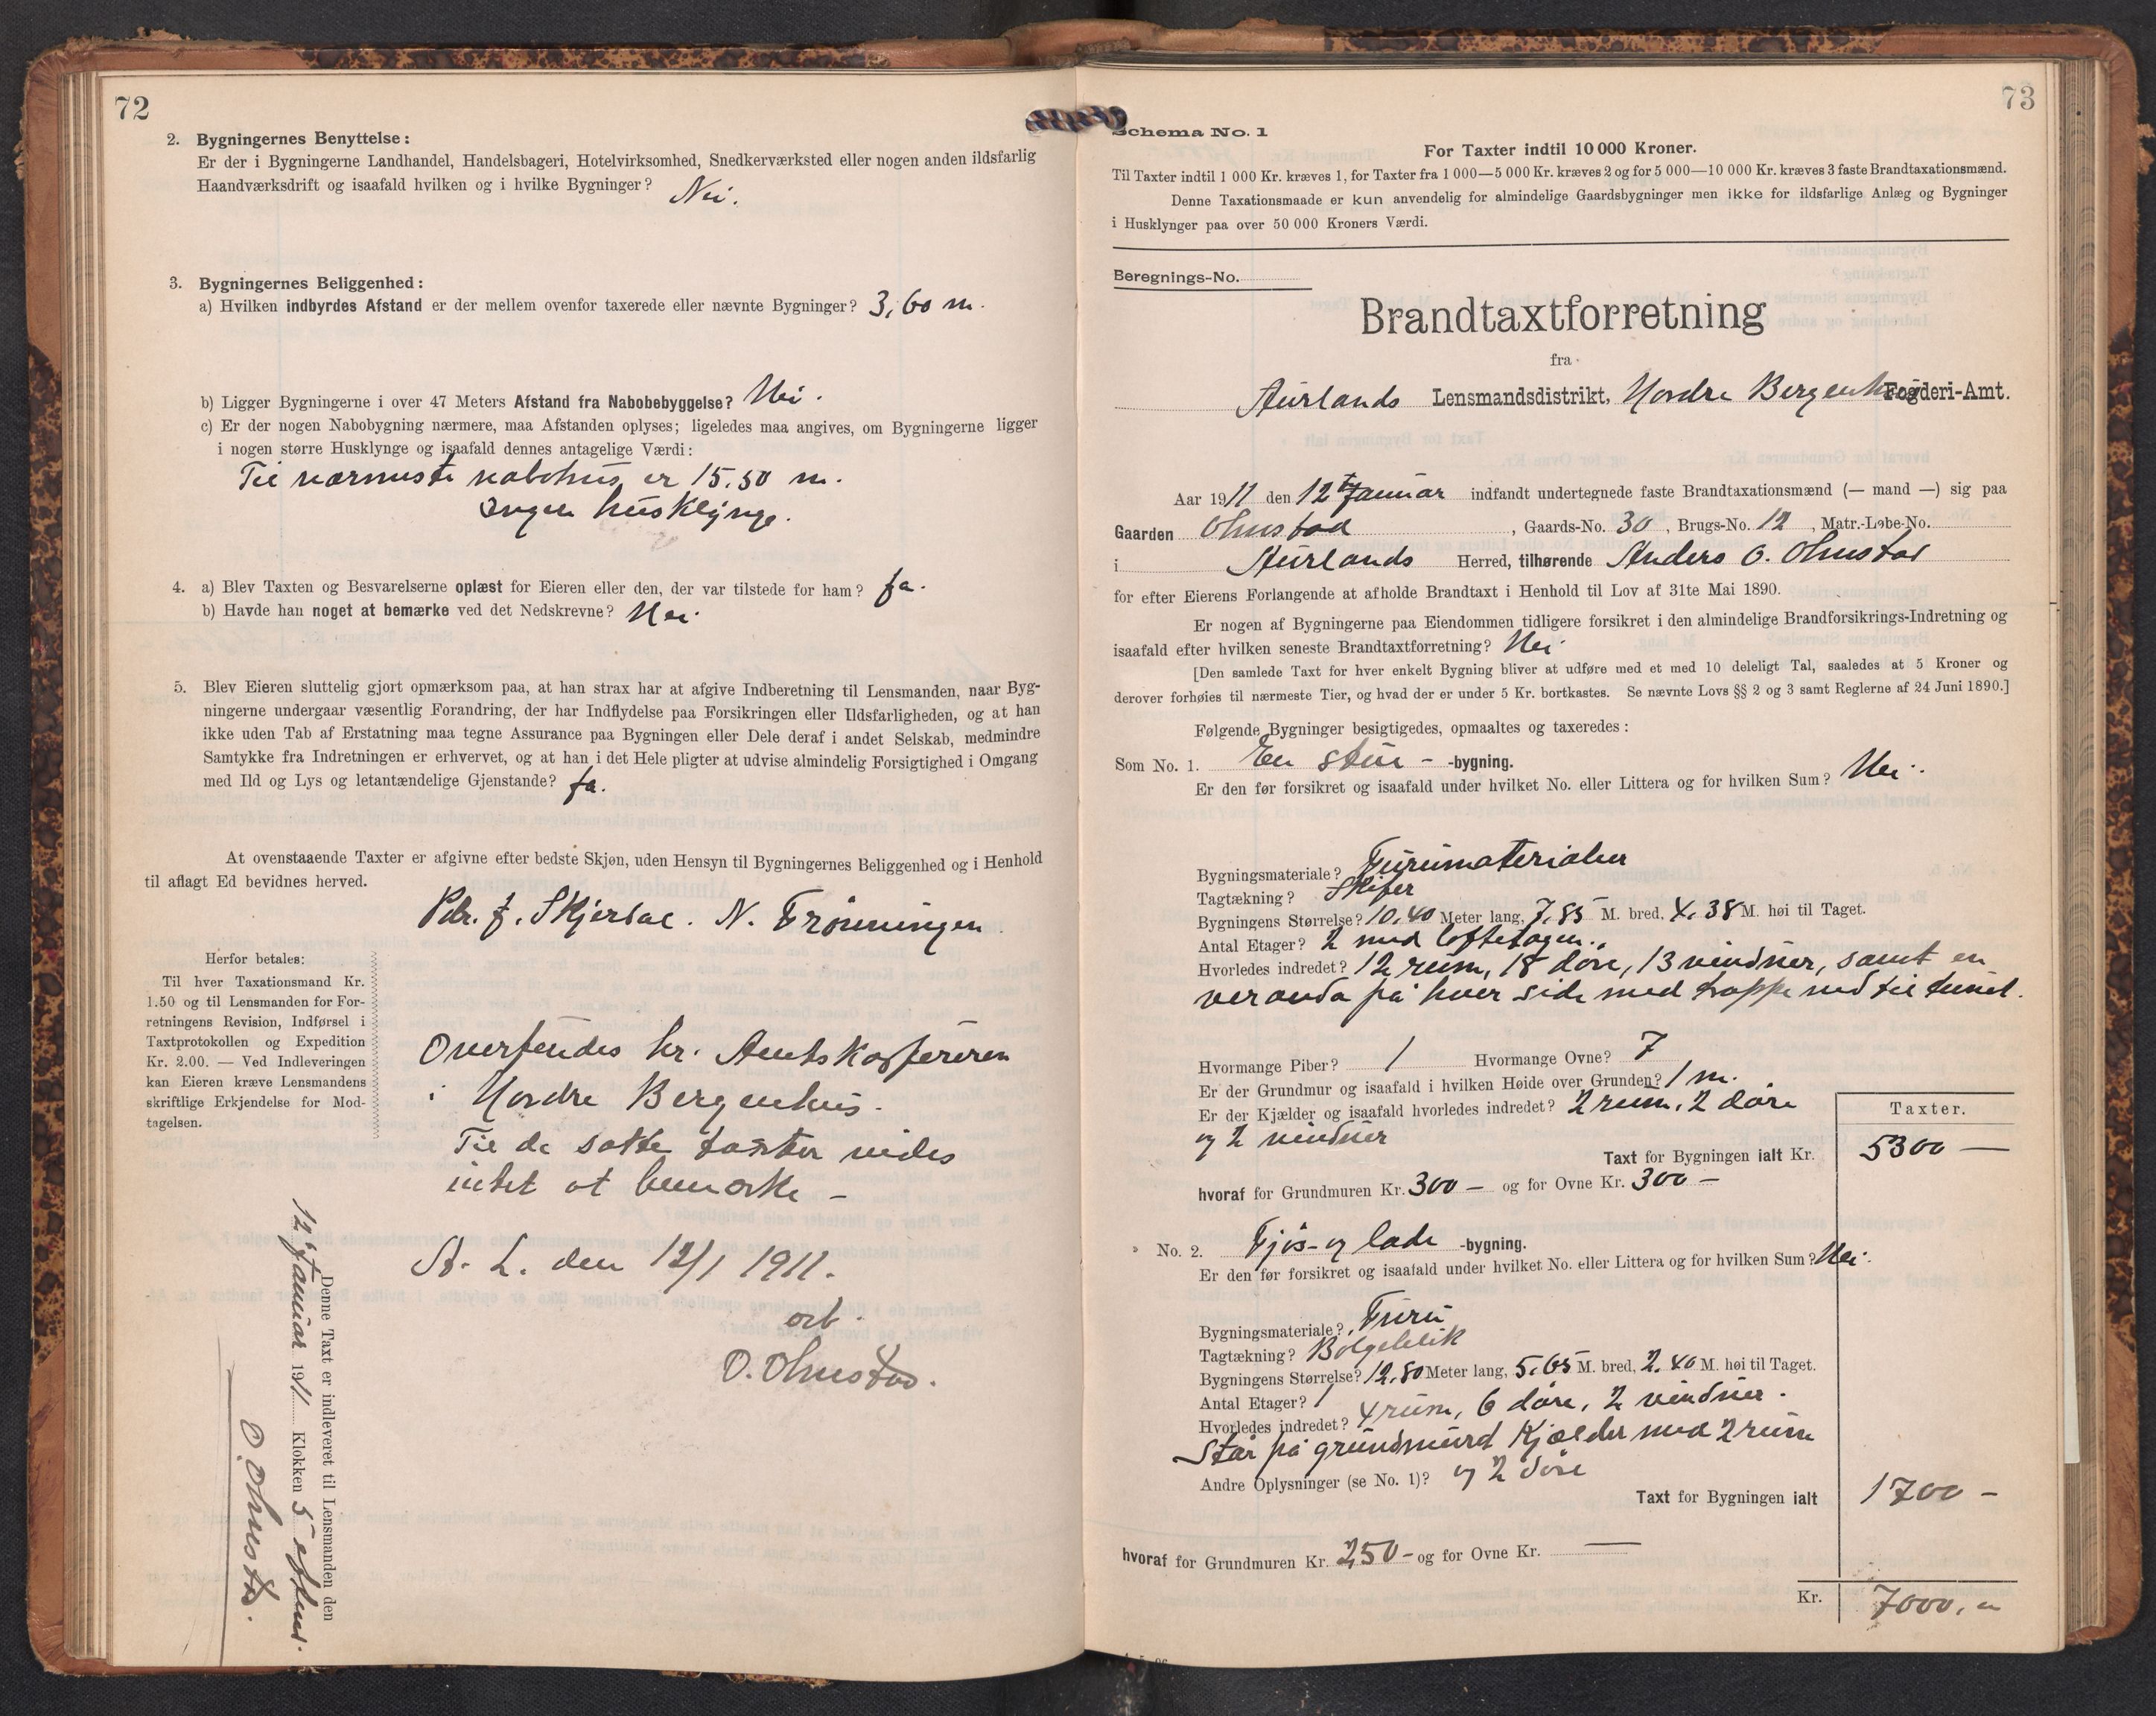 72
2. Bygningernes Benyttelse:
Er der i Bygningerne Landhandel, Handelsbageri, Hotelvirksomhed, Snedkerværksted eller nogen anden ildsfarlig
Haandværksdrift og isaafald hvilken og i hvilke Bygninger? Nei.
3. Bygningernes Beliggenhed:
a) Hvilken indbyrdes Afstand er der mellem ovenfor taxerede eller nævnte Bygninger? 3,60 m.
b) Ligger Bygningerne i over 47 Meters Afstand fra Nabobebyggelse? Nei.
c) Er der nogen Nabobygning nærmere, maa Afstanden oplyses; ligeledes maa angives, om Bygningerne ligger
i nogen større Husklynge og isaafald dennes antagelige Værdi:
Til nærmeste nabohus er 15.50 m.
Ingen husklynge.
4. a) Blev Taxten og Besvarelserne oplæst for Eieren eller den, der var tilstede for ham? Ja.
b) Havde han noget at bemærke ved det Nedskrevne? Nei.
5. Blev Eieren sluttelig gjort opmærksom paa, at han strax har at afgive Indberetning til Lensmanden, naar Byg-
ningerne undergaar væsentlig Forandring, der har Indflydelse paa Forsikringen eller Ildsfarligheden, og at han
ikke uden Tab af Erstatning maa tegne Assurance paa Bygningen eller Dele deraf i andet Selskab, medmindre
Samtykke fra Indretningen er erhvervet, og at han i det Hele pligter at udvise almindelig Forsigtighed i Omgang
med Ild og Lys og letantændelige Gjenstande? Ja.
At ovenstaaende Taxter er afgivne efter bedste Skjøn, uden Hensyn til Bygningernes Beliggenhed og i Henhold
til aflagt Ed bevidnes herved.
Pdr. J. Skjerdal. N. Frønningen
Herfor betales:
Til hver Taxationsmand Kr.
1.50 og til Lensmanden for For-
retningens Revision, Indførsel i
Taxtprotokollen og Expedition
Kr. 2.00. — Ved Indleveringen
kan Eieren kræve Lensmandens
skriftlige Erkjendelse for Mod-
tagelsen.
Oversendes hr. Amtskassereren
i Nordre Bergenhus.
Til de satte taxter vides
intet at bemærke -
St. L. den 12/1 1911.
O. Ohnstad.
Denne Taxt er indleveret til Lensmanden den
12 Januar 1911 Klokken 5 efterm.
O. Ohnstad.
73
Schema No. 1
For Taxter indtil 10 000 Kroner.
Til Taxter indtil 1 000 Kr. kræves 1, for Taxter fra 1 000—5 000 Kr. kræves 2 og for 5 000—10 000 Kr. kræves 3 faste Brandtaxationsmænd.
Denne Taxationsmaade er kun anvendelig for almindelige Gaardsbygninger men ikke for ildsfarlige Anlæg og Bygninger
i Husklynger paa over 50 000 Kroners Værdi.
Beregnings-No.
Brandtaxtforretning
fra
Aurlands Lensmandsdistrikt, Nordre Bergenhus Fogderi-Amt.
Aar 1911 den 12te Januar indfandt undertegnede faste Brandtaxationsmænd (— mand —) sig paa
Gaarden Ohnstad, Gaards-No. 30, Brugs-No. 12, Matr.-Løbe-No.
i Aurlands Herred, tilhørende Anders O. Ohnstad
for efter Eierens Forlangende at afholde Brandtaxt i Henhold til Lov af 31te Mai 1890.
Er nogen af Bygningerne paa Eiendommen tidligere forsikret i den almindelige Brandforsikrings-Indretning og
isaafald efter hvilken seneste Brandtaxtforretning? Nei.
[Den samlede Taxt for hver enkelt Bygning bliver at udføre med et med 10 deleligt Tal, saaledes at 5 Kroner og
derover forhøies til nærmeste Tier, og hvad der er under 5 Kr. bortkastes. Se nævnte Lovs §§ 2 og 3 samt Reglerne af 24 Juni 1890.]
Følgende Bygninger besigtigedes, opmaaltes og taxeredes:
Som No. 1. En stue- -bygning.
Er den før forsikret og isaafald under hvilket No. eller Littera og for hvilken Sum? Nei.
Bygningsmateriale? Furumaterialer
Tagtækning? Skifer
Bygningens Størrelse? 10.40 Meter lang, 7.85 M. bred, 4.38 M. høi til Taget.
Antal Etager? 2 med loftetagen.
Hvorledes indredet? 12 rum, 18 døre, 13 vinduer, samt en
veranda på hver side med trappe ned til tunet.
Hvormange Piber? 1 Hvormange Ovne? 7
Er der Grundmur og isaafald i hvilken Høide over Grunden? 1 m.
Er der Kjælder og isaafald hvorledes indredet? 2 rum, 2 døre
og 2 vinduer
Taxter.
Taxt for Bygningen ialt Kr. 5300 —
hvoraf for Grundmuren Kr. 300 — og for Ovne Kr. 300 —
No. 2. Fjøs- og lade -bygning.
Er den før forsikret og isaafald under hvilket No. eller Littera og for hvilken Sum? Nei.
Bygningsmateriale? Furu
Tagtækning? Bølgeblik
Bygningens Størrelse? 12.80 Meter lang, 5.65 M. bred, 2.40 M. høi til Taget.
Antal Etager? 1
Hvorledes indredet? 4 rum, 6 døre, 2 vinduer.
Står på grundmurd Kjælder med 2 rum
Andre Oplysninger (se No. 1)? og 2 døre
Taxt for Bygningen ialt 1700 -
hvoraf for Grundmuren Kr. 250 - og for Ovne Kr. —
Kr. 7000,